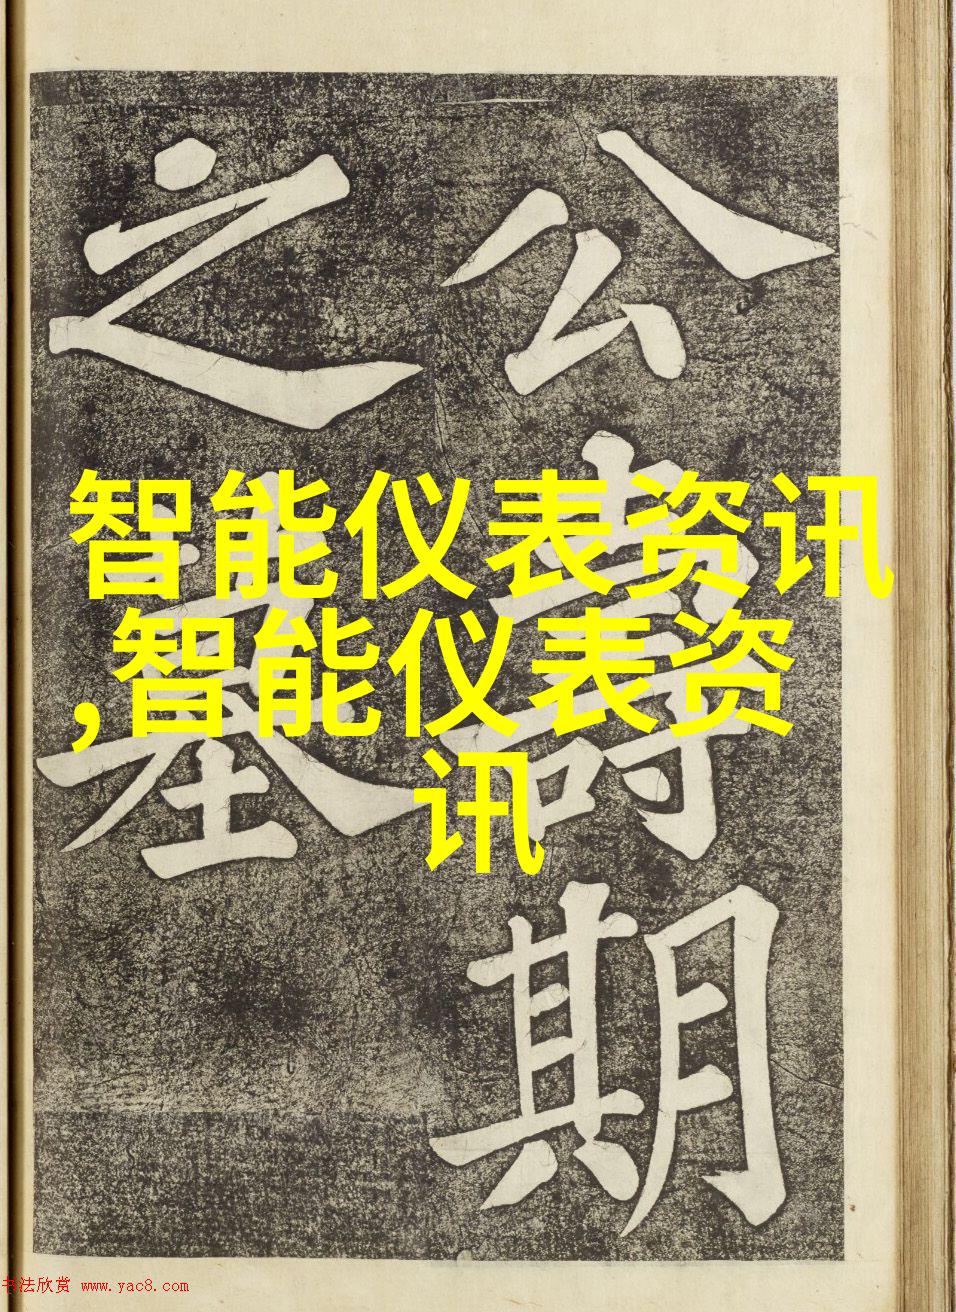 公壽期
之墓
智能仪表资讯
,智能仪表资
讯
书法欣赏 www.yac8.com